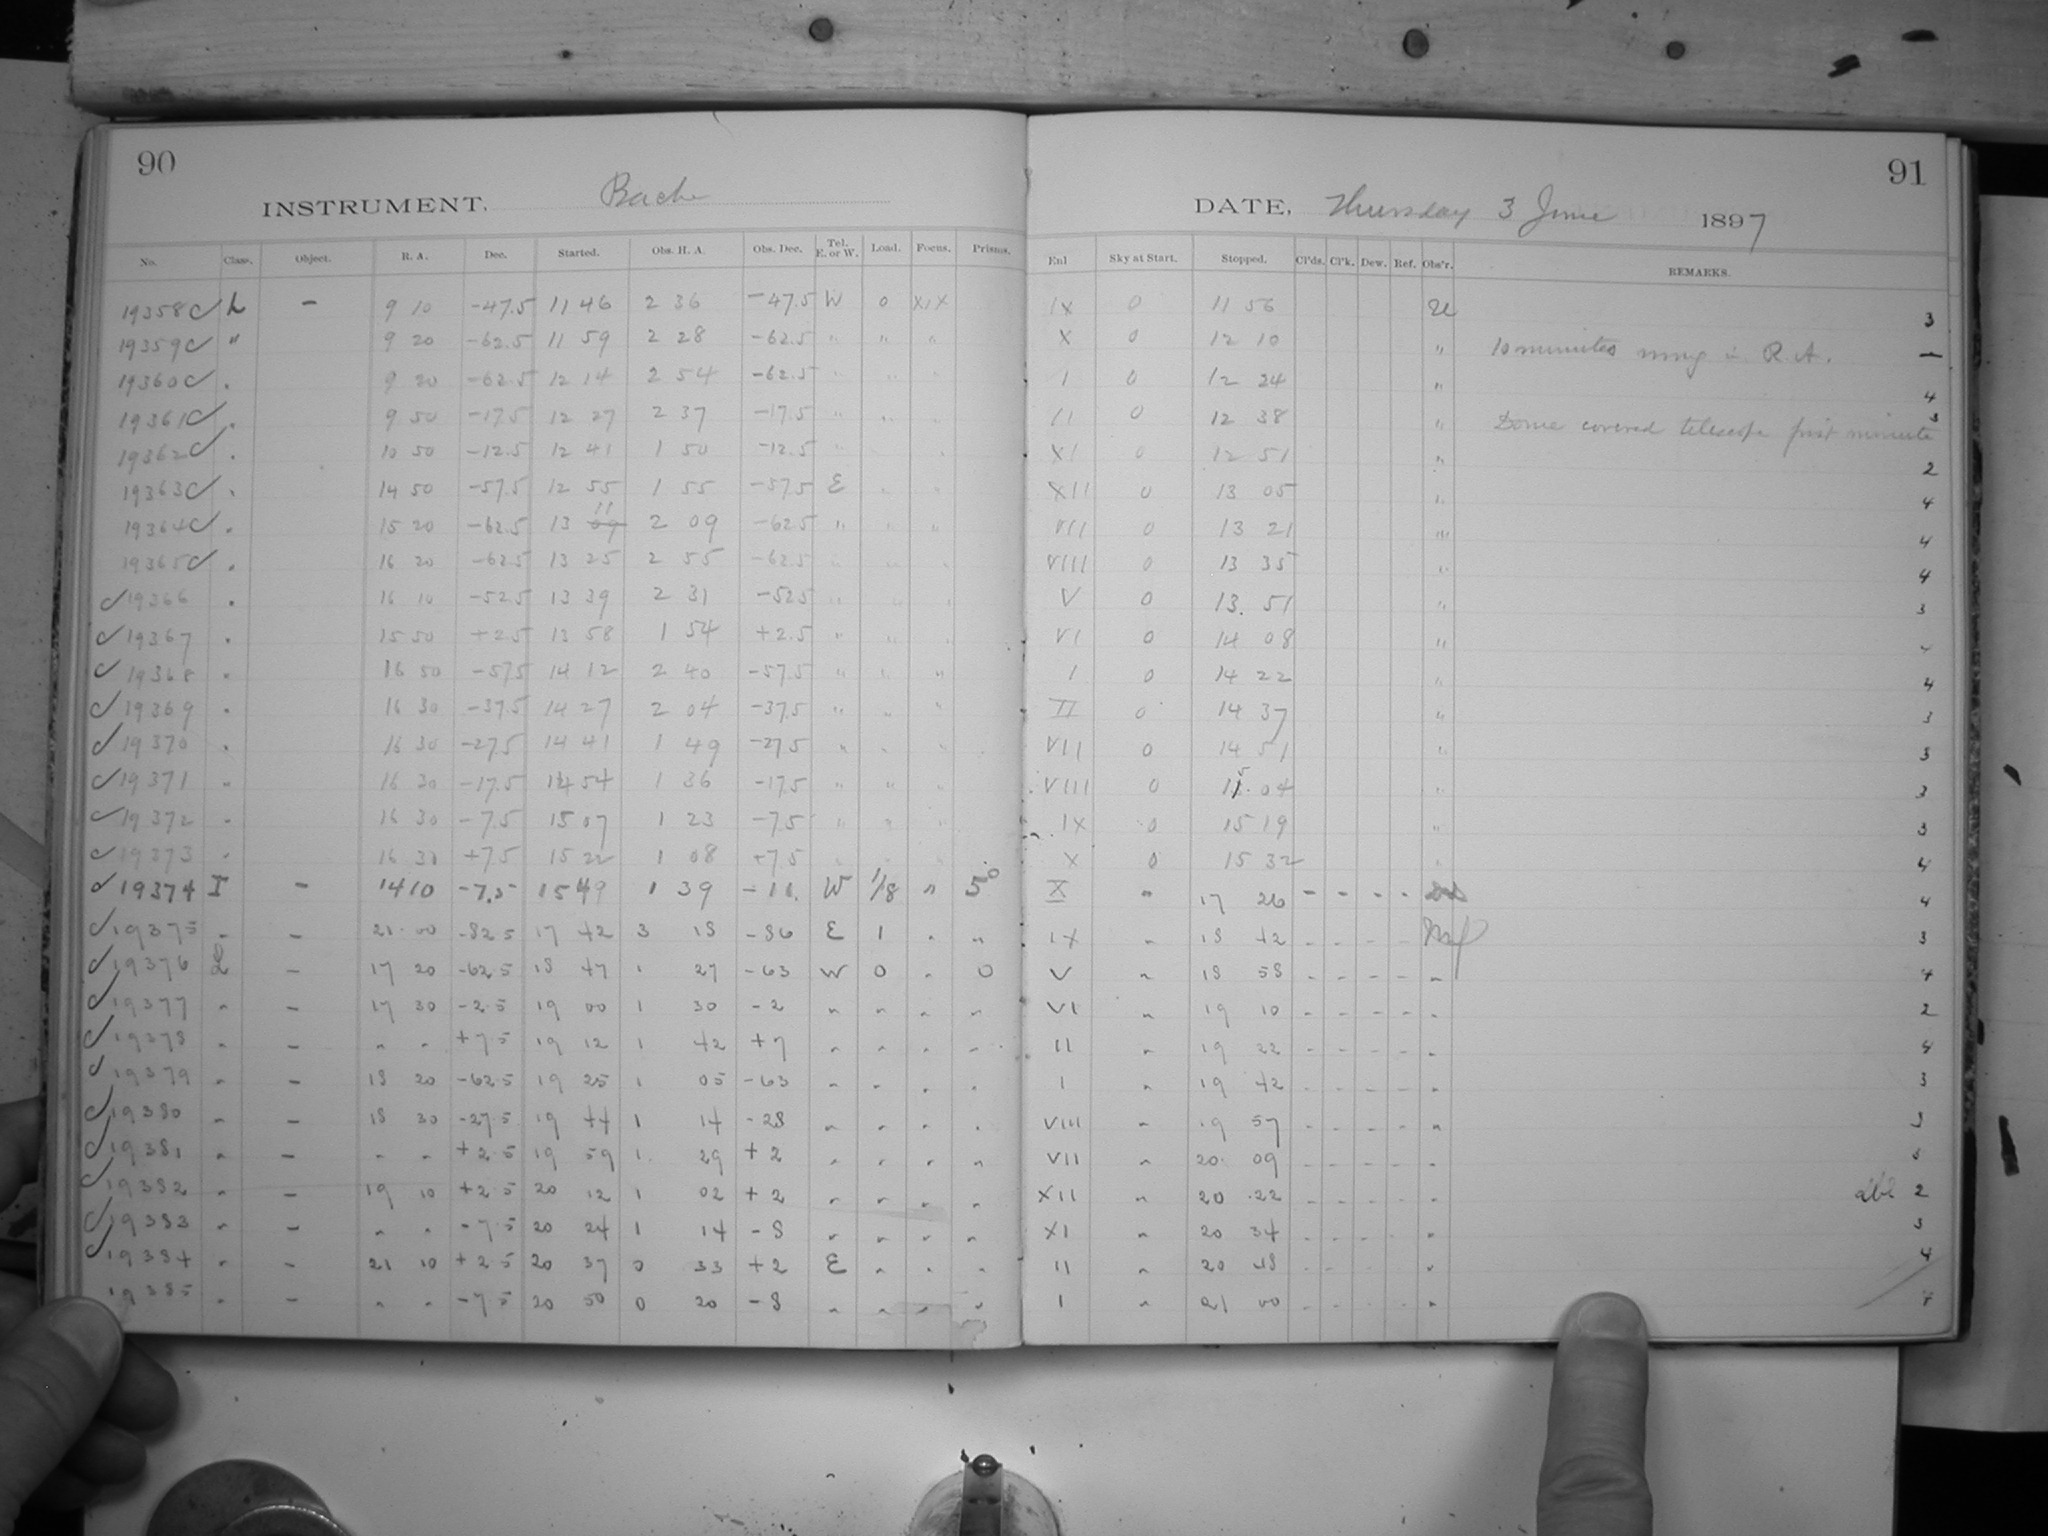 90
91
INSTRUMENT, Bache
DATE, Thursday 3 June 1897
No. Class. Object. R. A. Dec. Started. Obs. H. A. Obs. Dec. Tel. E. or W. Load. Focus. Prisms. Enl Sky at Start. Stopped. Cl'ds. Cl'k. Dew. Ref. Obs'r. REMARKS.
19358 L - 9 10 -47.5 11 46 2 36 -47.5 W 0 XIX IX 0 11 56 3
19359 " 9 20 -62.5 11 59 2 28 -62.5 " " " X 0 12 10 " 10 minutes wrong in R. A. —
19360 " 9 20 -62.5 12 14 2 54 -62.5 " " " I 0 12 24 " 4
19361 " 9 50 -17.5 12 27 2 37 -17.5 " " " II 0 12 38 " Dome covered telescope first minute 3
19362 " 10 50 -12.5 12 41 1 50 -12.5 " " " XI 0 12 51 " 2
19363 " 14 50 -57.5 12 55 1 55 -57.5 E " " XII 0 13 05 " 4
19364 " 15 20 -62.5 13 11 2 09 -62.5 " " " VII 0 13 21 " 4
19365 " 16 20 -62.5 13 25 2 55 -62.5 " " " VIII 0 13 35 " 4
19366 " 16 10 -52.5 13 39 2 31 -52.5 " " " V 0 13. 51 " 3
19367 " 15 50 +2.5 13 58 1 54 +2.5 " " " VI 0 14 08 "
19368 " 16 50 -57.5 14 12 2 40 -57.5 " " " I 0 14 22 " 4
19369 " 16 30 -37.5 14 27 2 04 -37.5 " " " II 0 14 37 " 3
19370 " 16 30 -27.5 14 41 1 49 -27.5 " " " VII 0 14 51 " 3
19371 " 16 30 -17.5 14 54 1 36 -17.5 " " " VIII 0 15 04 " 3
19372 " 16 30 -7.5 15 07 1 23 -7.5 " " " IX 0 15 19 " 3
19373 " 16 30 +7.5 15 22 1 08 +7.5 " " " X 0 15 32 " 4
19374 I - 14 10 -7.5 15 49 1 39 -11. W 1/8 " 5° X " 17 26 - - - - 4
19375 " - 21 00 -82.5 17 42 3 18 -86 E 1 " " IX " 18 42 - - - - 3
19376 L - 17 20 -62.5 18 47 1 27 -63 W 0 " 0 V " 18 58 - - - - " 4
19377 " - 17 30 -2.5 19 00 1 30 -2 " " " " VI " 19 10 - - - - " 2
19378 " - " " +7.5 19 12 1 42 +7 " " " " II " 19 22 - - - - " 4
19379 " - 18 20 -62.5 19 25 1 05 -63 " " " " I " 19 42 - - - - " 3
19380 " - 18 30 -27.5 19 44 1 14 -28 " " " " VIII " 19 57 - - - - " 3
19381 " - " " +2.5 19 59 1 29 +2 " " " " VII " 20 09 - - - - "
19382 " - 19 10 +2.5 20 12 1 02 +2 " " " " XII " 20 22 - - - - " dbl 2
19383 " - " " -7.5 20 24 1 14 -8 " " " " XI " 20 34 - - - - " 3
19384 " - 21 10 +2.5 20 37 0 33 +2 E " " " II " 20 48 - - - " 4
19385 " - " " -7.5 20 50 0 20 -8 " " " " I " 21 00 - - - - "